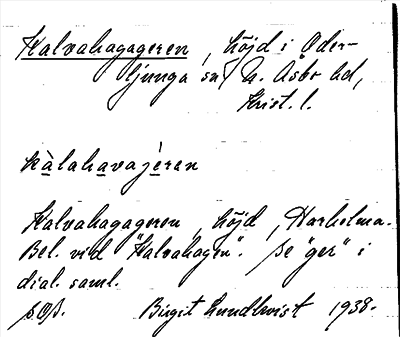 Kalvahagageren, höjd i Oder-
ljunga sn, N. Åsbo hd,
Krist. l.
kàlahavajèren
Kalvahagageren, höjd, Harholma.
Bel. vid "Kalvahagen". Se "ger" i
dial. saml.
Birgit Lundkvist 1938.